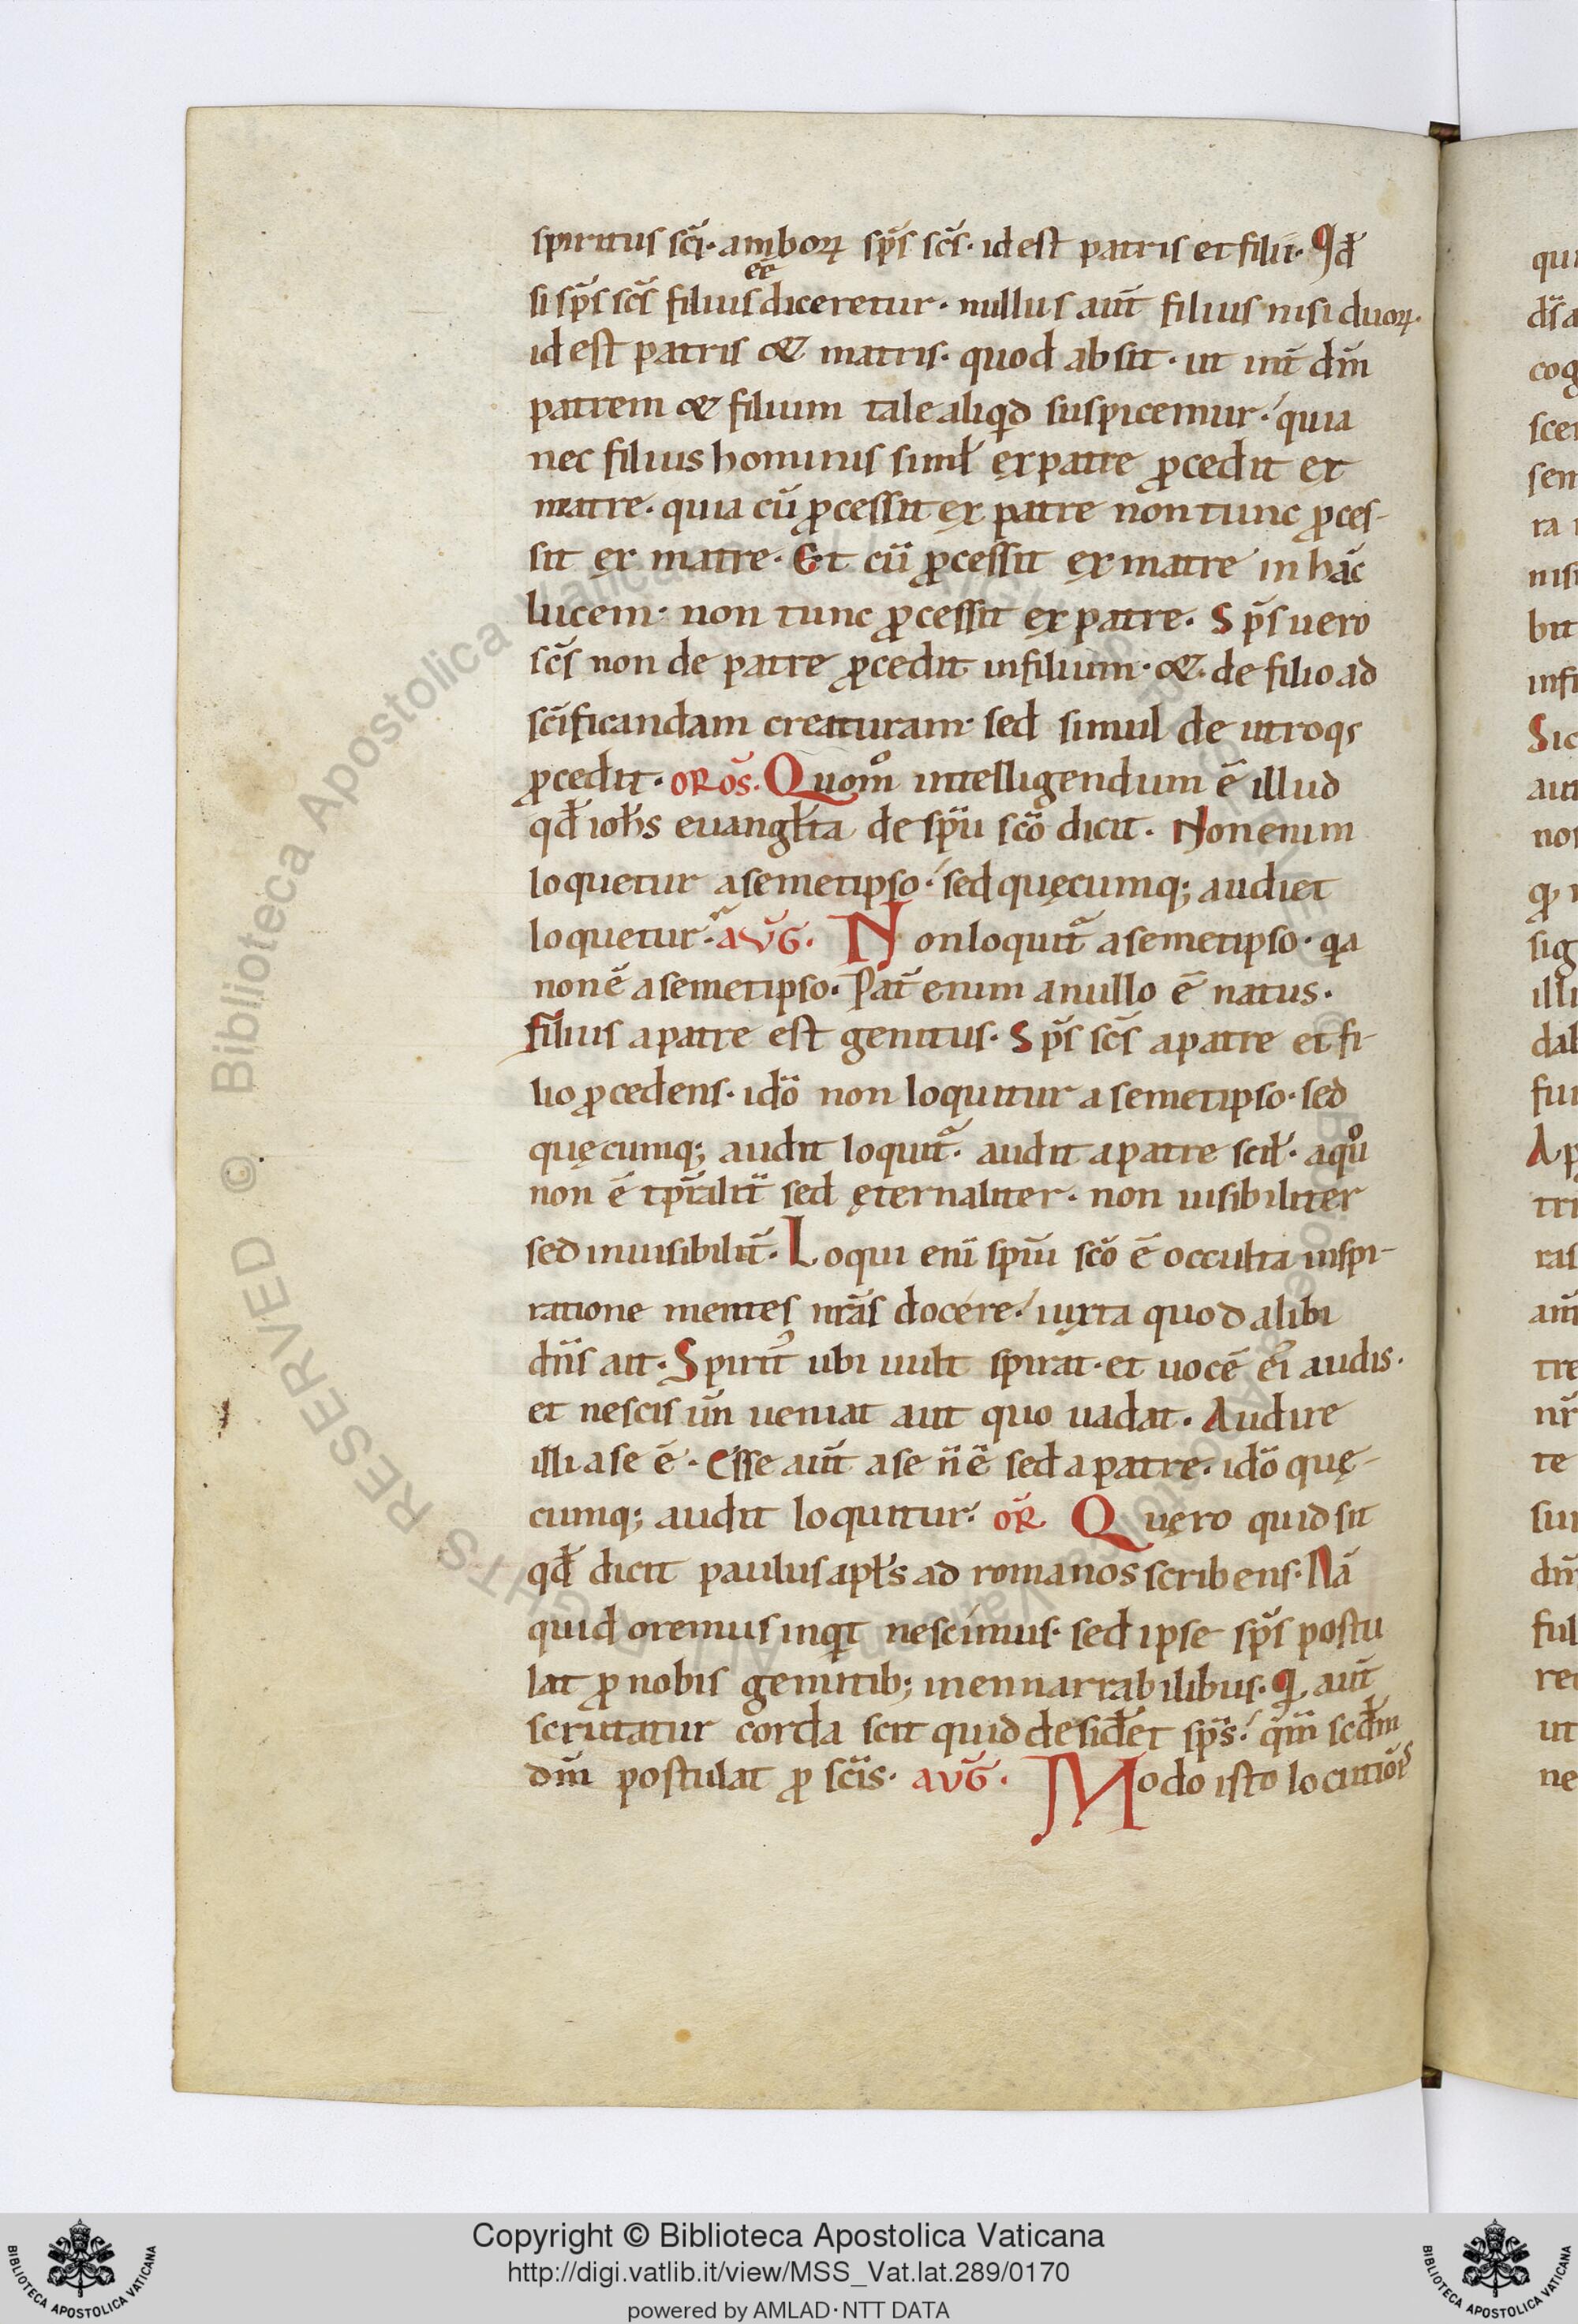 spiritus scī· amboꝝ sp̄s sc̄s· id est patris et filii· Qd̄
si sp̄s sc̄s filius ēē diceretur· nullus aut̄ filius nisi duoꝝ·
id est patris & matris· quod absit· ut int̄ dm̄
patrem & filium tale aliqͥd suspicemur· quia
nec filius hominis simł ex patre ꝓcedit et
matre· quia cū ꝓcessit ex patre non tunc ꝓces-
sit ex matre· Et cū ꝓcessit ex matre in hāc
lucem· non tunc ꝓcessit ex patre· Sp̄s uero
sc̄s non de patre ꝓcedit in filium· & de filio ad
scīficandam creaturam· sed simul de utroqs
ꝓcedit· OROS̄· Quom̊ intelligendum ē illud
qd̄ ioh̄s euangl̄ta de sp̄u scō dicit· Non enim
loquetur a semetipso· sed quęcumq; audiet
loquetur· AVḠ· Non loquit̄ a semetipso· qͥa
non ē a semetipso· Pat̄ enim a nullo ē natus·
filius a patre est genitus· Sp̄s sc̄s a patre et fi-
lio ꝓcedens· idō non loquitur a semetipso· sed
quęcumq; audit loquit̄· audit a patre scił· a quͦ
non ē tp̄ralit̄ sed ęternaliter· non uisibiliter
sed inuisibilit̄· Loqui enī sp̄m scō ē occulta inspi-
ratione mentes nrās docere· iuxta quod alibi
dn̄s ait· Spiritꝰ ubi uult spirat· et uocē ei audis·
et nescis un̄ ueniat aut quo uadat· Audire
illi a se ē· Esse aut̄ a se n̄ ē sed a patre· idō quę-
cumq; audit loquitur· OR̄ Quęro quid sit
qd̄ dicit paulus apl̄s ad romanos scribens· Nā
quid oremus inqͥt nescimus· sed ipse sp̄s postu
lat ꝓ nobis gemitib; inennarrabilibus· Qͥ aut̄
scrutatur corda scit quid desid̄et sp̄s· qm̄ scd̄m
dm̄ postulat ꝓ scīs· AVḠ· Modo isto locutiōis
Copyright © Biblioteca Apostolica Vaticana
http://digi.vatlib.it/view/MSS_Vat.lat.289/0170
powered by AMLAD·NTT DATA